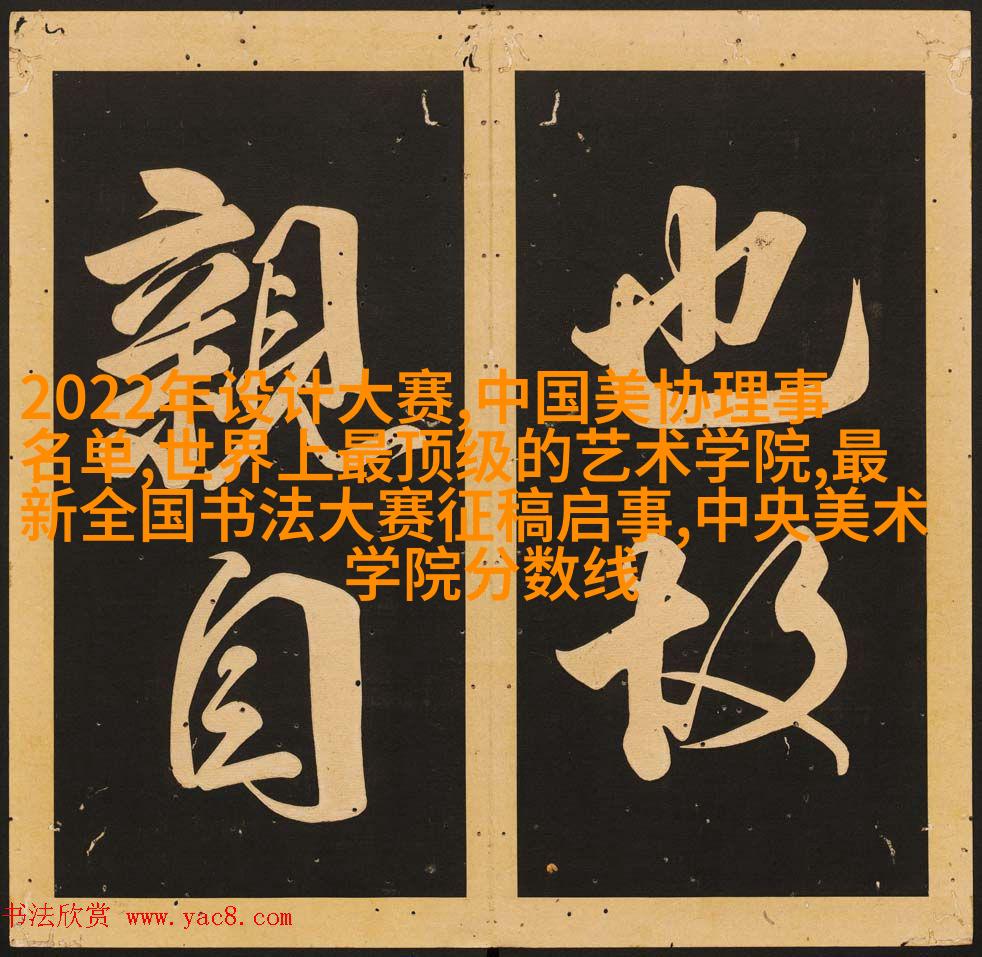 也故
親自
2022年设计大赛,中国美协理事
名单,世界上最顶级的艺术学院,最
新全国书法大赛征稿启事,中央美术
学院分数线
书法欣赏 www.yac8.com